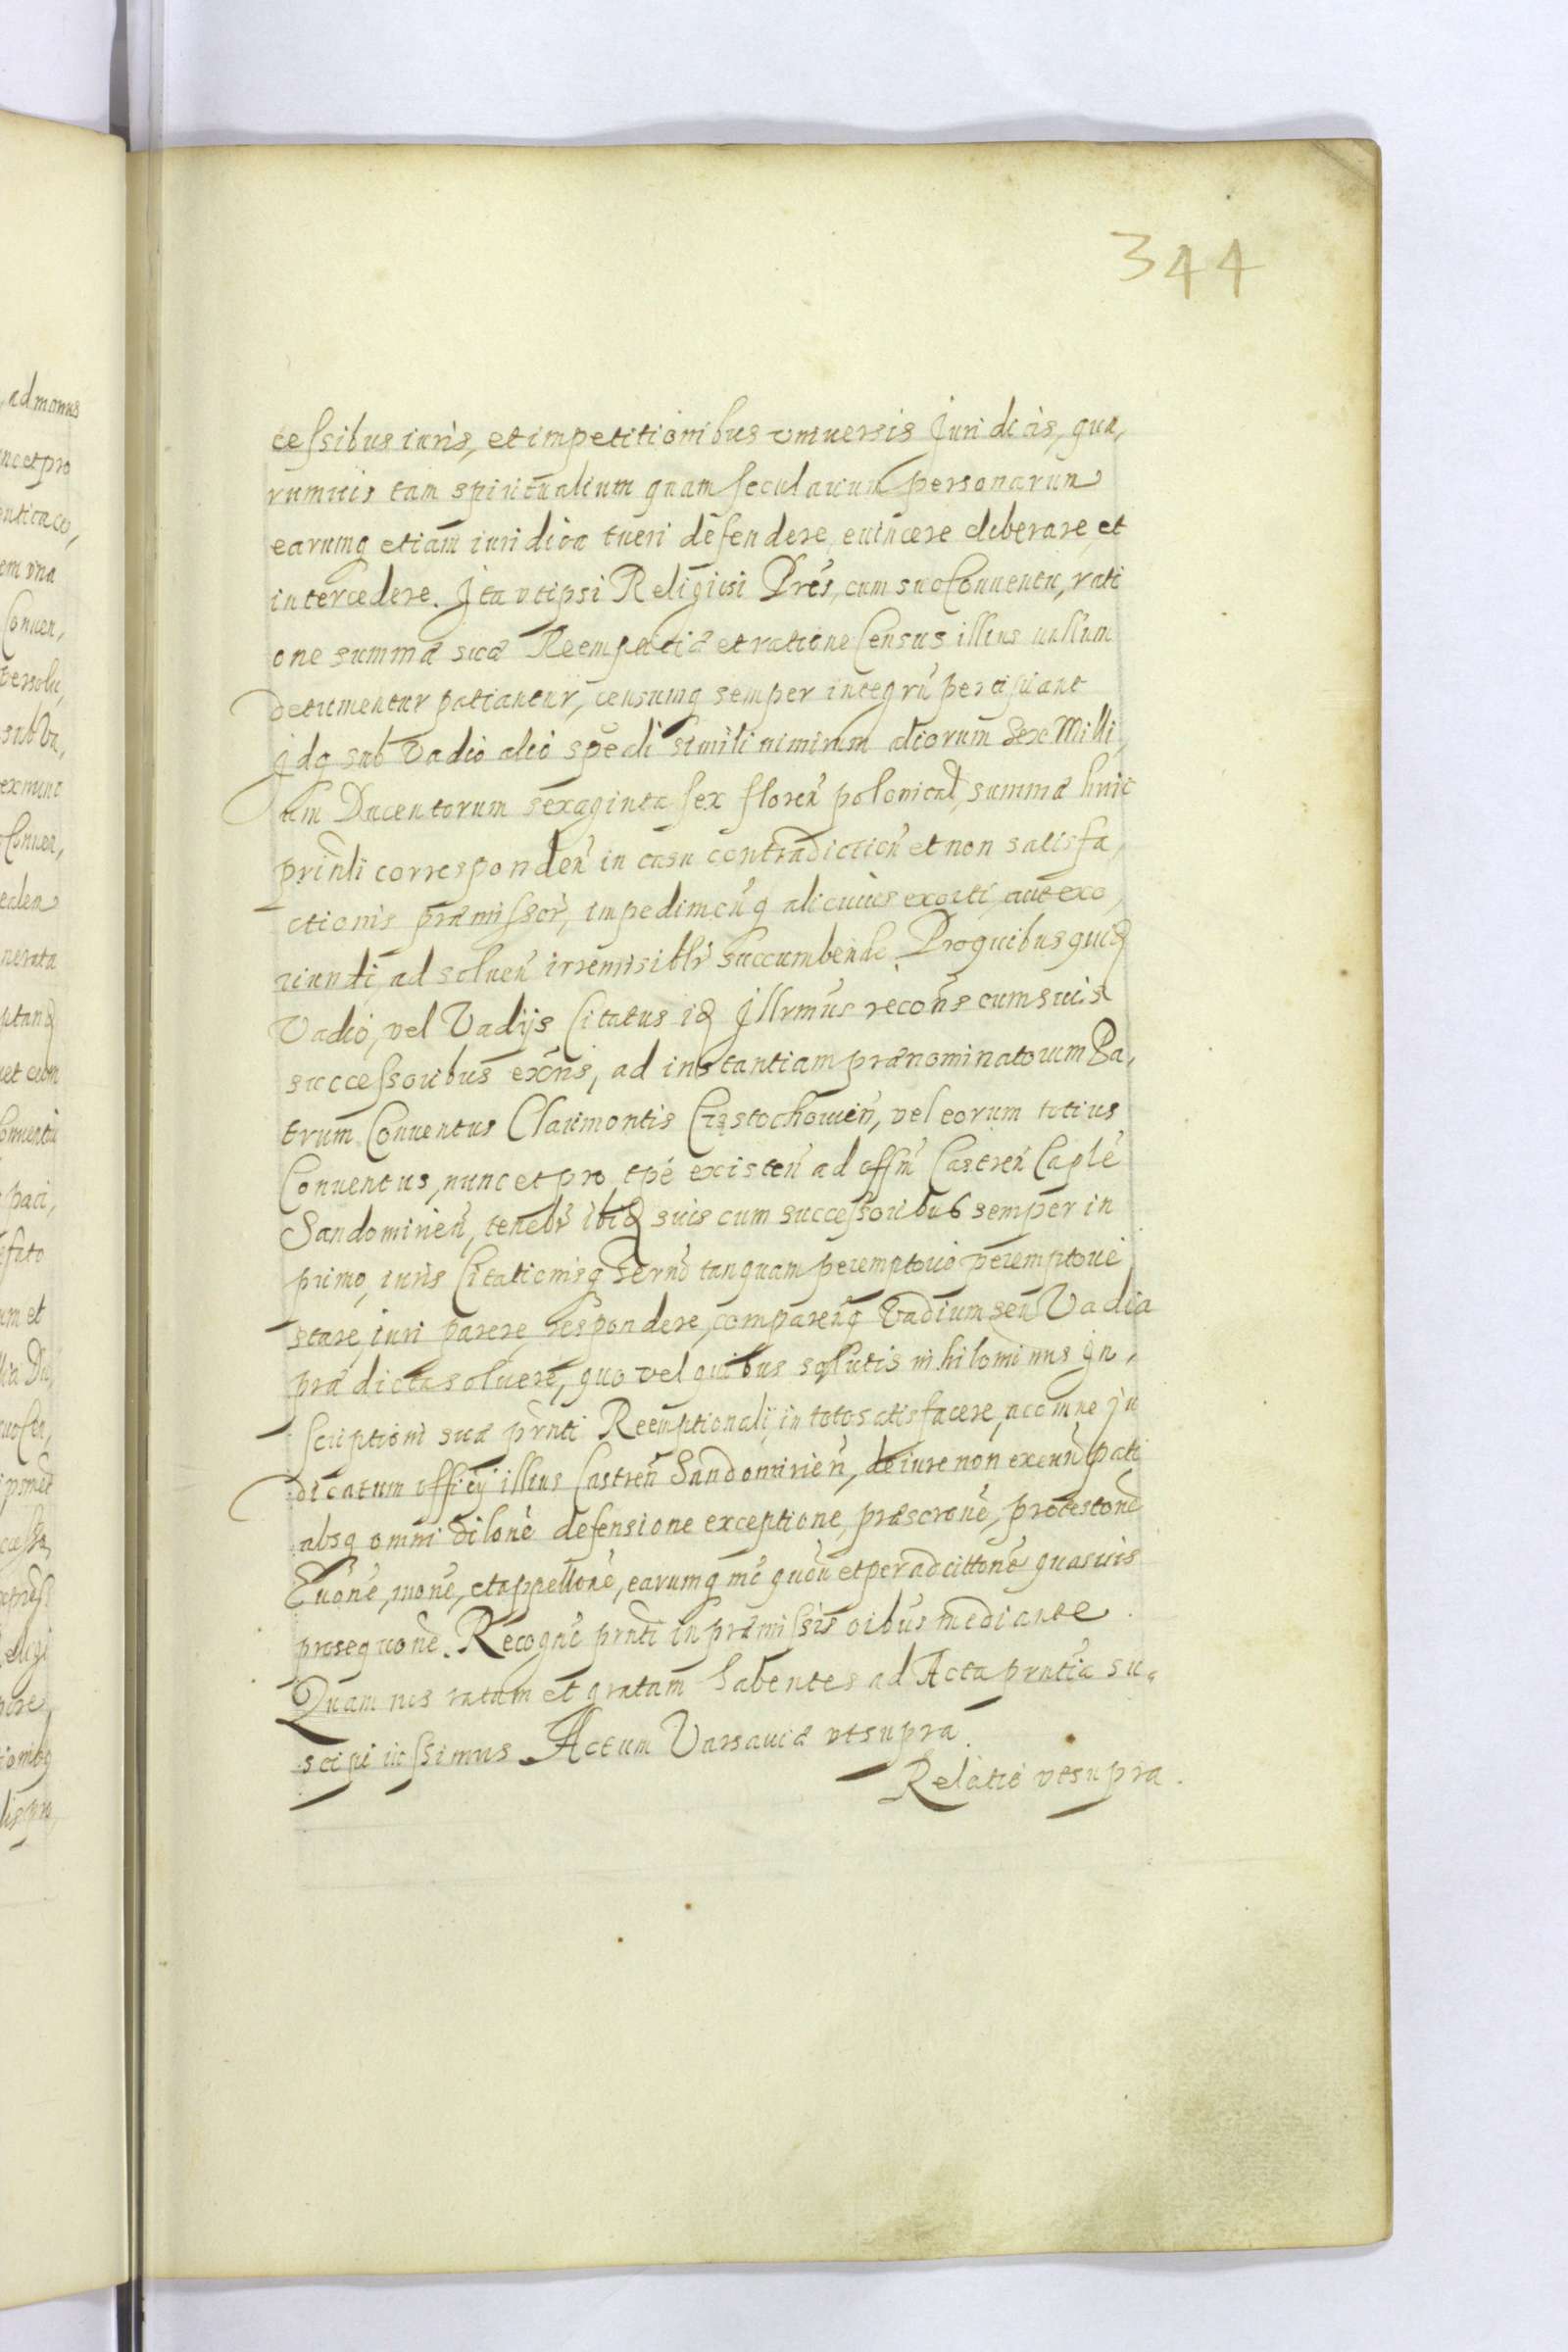 344
cessibus iuris, et impetitionibus vniuersis Juridicis, qua,
rumuis tam spiritualium quam secularium personarum
earumq etiam iuridica tueri defendere, euincere eliberare, et
intercedere. Jta vt ipsi Religiosi Pres, cum suo Conuentu, rati
one summæ suæ Reemptitiæ et ratione Census illius nullum
detrimentur patiantur, censumq semper integrũ percipiant
Jdq sub Vadio alio speali simili nimirum aliorum Sex Milli,
um Ducentorum sexaginta sex floreñ polonical, summæ huic
prindli correspondeñ in casu contradictioñ et non satisfa,
ctionis præmissor, impedimenq alicuius exorti, aut exo,
riundi, ad soluen irremisiblr succumbendo. Proquibus quidẽ
Vadio, vel Vadijs Citatus idẽ Jllrmus recons cum suis
successoribus exñs, ad instantiam prænominatorum Pa,
trum Conuentus Clarimontis Cząstochouieñ, vel eorum totius
Conuentus, nunc et pro tpe existeñ ad offm Castreñ Caple
Sandomirieñ, tenebr ibidẽ suis cum successoribus semper in
primo, iuris Citationisq Termo tanquam peremptorio peremptorie
stare, iuri parere, respondere, comparenq Vadium seu Vadia
prædicta soluere, quo vel quibus solutis nihilominus Jn,
scriptioni suæ prñti Reemptionali, in toto satisfacere, ac omne Ju
dicatum officij illius Castreñ Sandomirieñ, de iure non exeuñ pati
absq omni dilone defensione exceptione, præscrone, protestone
Euone, mone, et appellone, earumq me quõu et per adcittone quasuis
prosequone. Recogne prnti in præmissis oibus mediante
Quam nos ratam et gratam habentes ad Acta prntia su,
scipi iussimus. Actum Varsauiæ vt supra.
Relatio vt supra.
ad manus
nc et pro
em vna
Conuen,
sub Va,
Conuen,
nerata
paci,
um et